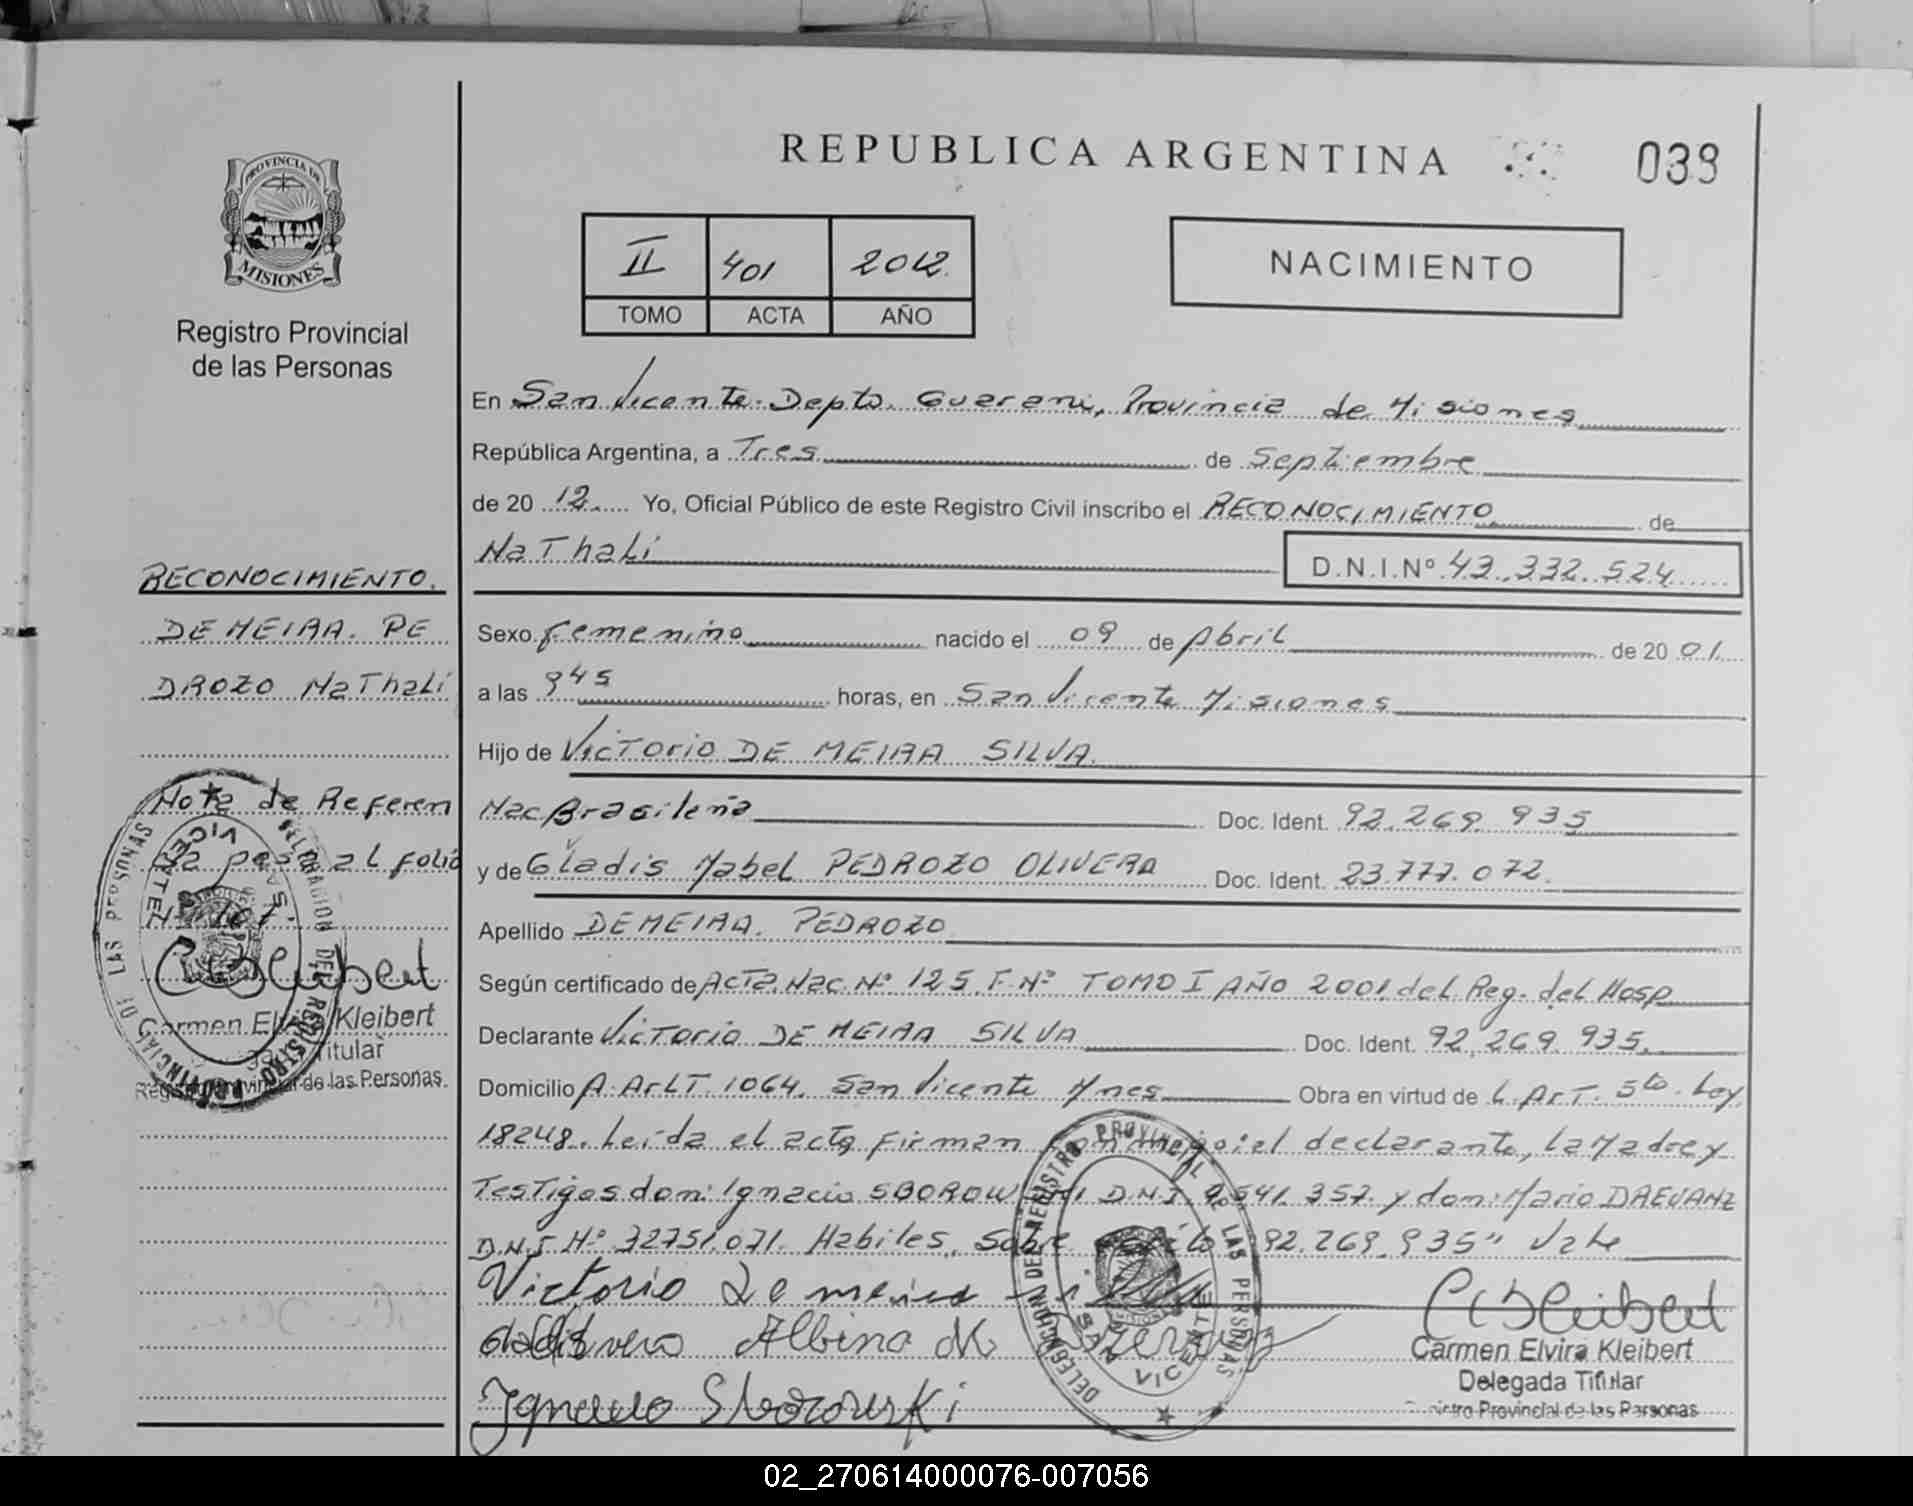 PROVINCIA DE
MISIONES
Registro Provincial
de las Personas
RECONOCIMIENTO.
DE MEIRA. PE
DROZO NaThalí
Nota de Referen
pasa al folio
Nº 107
CEKleibert
Carmen Elvira Kleibert
Titular
Registro Provincial de las Personas
DELEGACION DEL REGISTRO PROVINCIAL DE LAS PERSONAS
SAN VICENTE
REPUBLICA ARGENTINA 039
II 401 2012.
TOMO ACTA AÑO
NACIMIENTO
En San Vicente. Depto. Guarani, Provincia de Misiones
República Argentina, a Tres de Septiembre
de 20 12. Yo, Oficial Público de este Registro Civil inscribo el RECONOCIMIENTO de
NaThalí D.N.I.Nº 43.332.524
Sexo femenino nacido el 09 de Abril de 20 01.
a las 945 horas, en San Vicente Misiones
Hijo de VicTorio DE MEIRA SILVA.
Nac Brasileña Doc. Ident. 92.269.935
y de Gladis Mabel PEDROZO OLIVERA Doc. Ident. 23.777.072.
Apellido DE MEIRA. PEDROZO
Según certificado de AcTa. Nac. Nº 125. F. Nº TOMO I AÑO 2001. del Reg. del Hosp
Declarante VicTorio DE MEIRA SILVA Doc. Ident. 92.269.935.
Domicilio A. ArLT. 1064. San Vicente Mnes Obra en virtud de L. ArT. 5to. Ley
18248. Leída el acta firman conmigo: el declarante, la Madre y
TesTigos don: Ignacio SBOROWSKI D.N.I. 7.541.357. y don: Mario DREVANZ
D.N.I Nº 32751.071. Habiles. Sobre "92.269.935" Vale
Victorio De meira
Albino M
Ignacio Sborowski
DELEGACION DEL REGISTRO PROVINCIAL DE LAS PERSONAS
SAN VICENTE
CEKleibert
Carmen Elvira Kleibert
Delegada Titular
Registro Provincial de las Personas
02_270614000076-007056